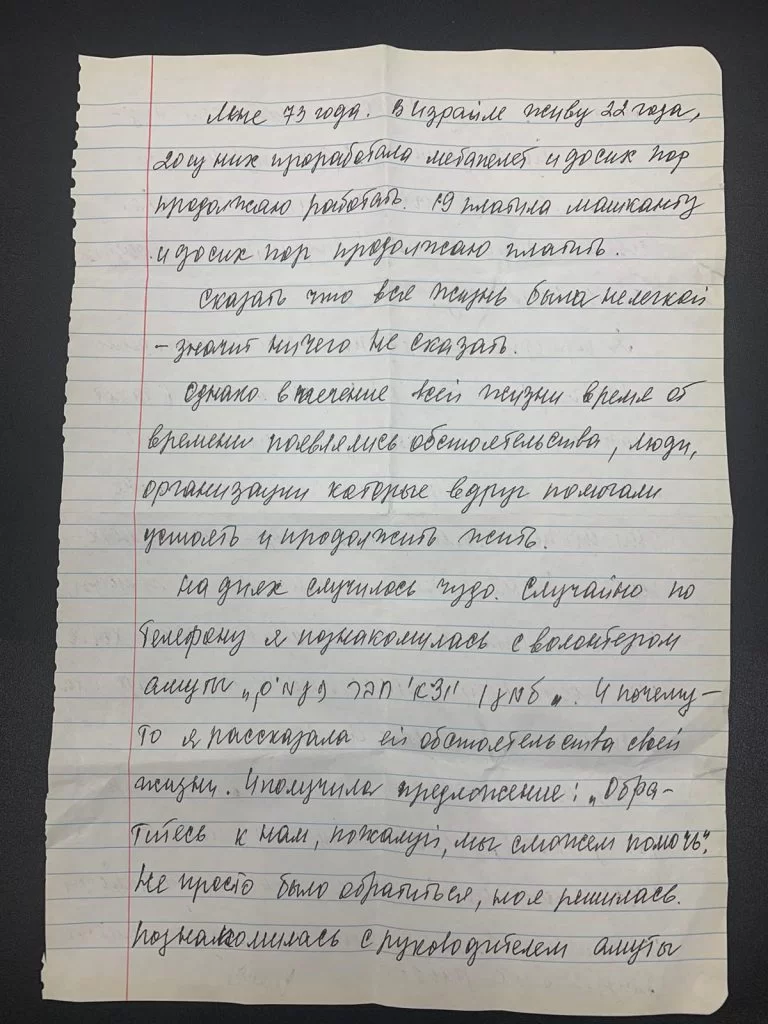 Мне 73 года. В Израиле живу 22 года,
20 из них проработала метапелет и до сих пор
продолжаю работать. Я платила машканту
и до сих пор продолжаю платить.
Сказать что вся жизнь была нелегкой
– значит ничего не сказать.
Однако в течение всей жизни время от
времени появлялись обстоятельства, люди,
организации которые вдруг помогали
устоять и продолжить жить.
На днях случилось чудо. Случайно по
телефону я познакомилась с волонтером
амуты „למען יוצאי חבר העמים". И почему–
то я рассказала ей обстоятельства своей
жизни. И получила предложение: „Обра–
титесь к нам, пожалуй, мы сможем помочь".
Не просто было обратиться, но я решилась.
Познакомилась с руководителем амуты